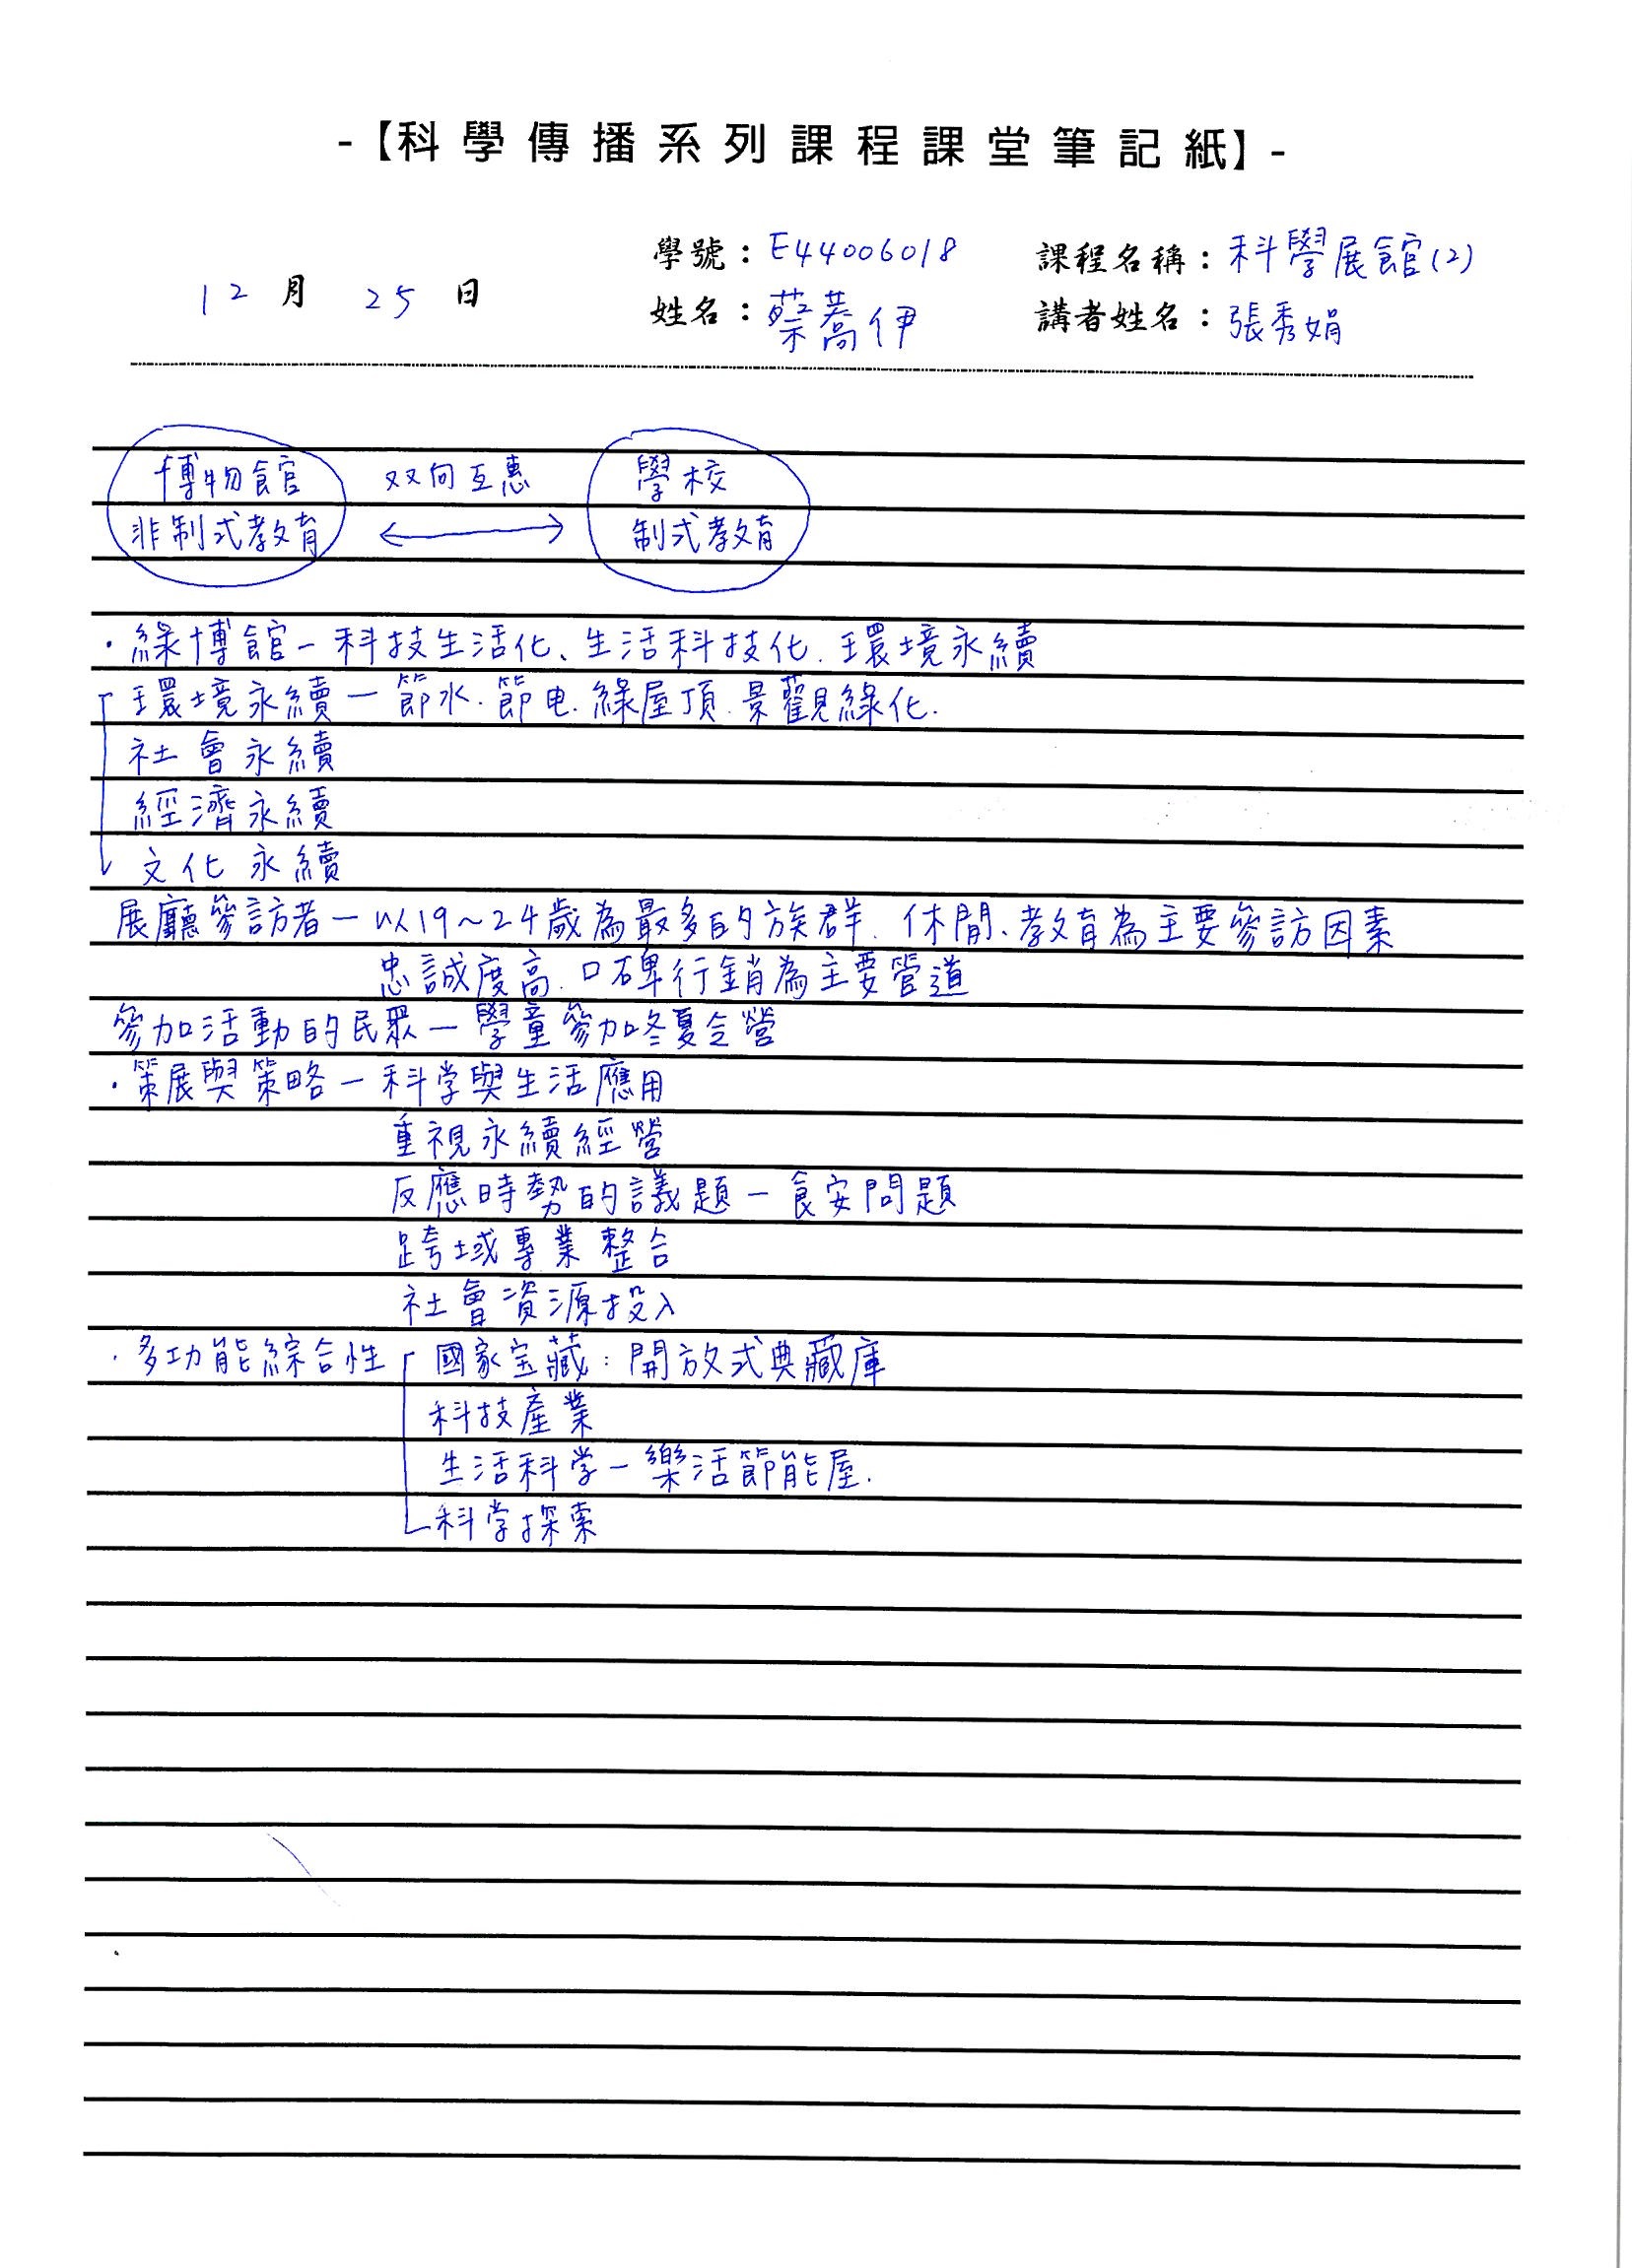 -【科學傳播系列課程課堂筆記紙】-
學號：E44006018 課程名稱：科學展館(2)
12月25日 姓名：蔡蕎伊 講者姓名：張秀娟
博物館 双向互惠 學校
非制式教育 制式教育
·綠博館－科技生活化、生活科技化、環境永續
環境永續－節水、節电、綠屋頂、景觀綠化.
社會永續
經濟永續
文化永續
展廳參訪者－以19～24歲為最多的族群、休閒、教育為主要參訪因素
忠誠度高、口碑行銷為主要管道
參加活動的民眾－學童參加冬夏令營
·策展與策略－科学與生活應用
重視永續經營
反應時勢的議題－食安問題
跨域專業整合
社會資源投入
·多功能綜合性 國家宝藏：開放式典藏庫
科技產業
生活科学－樂活節能屋.
科学探索